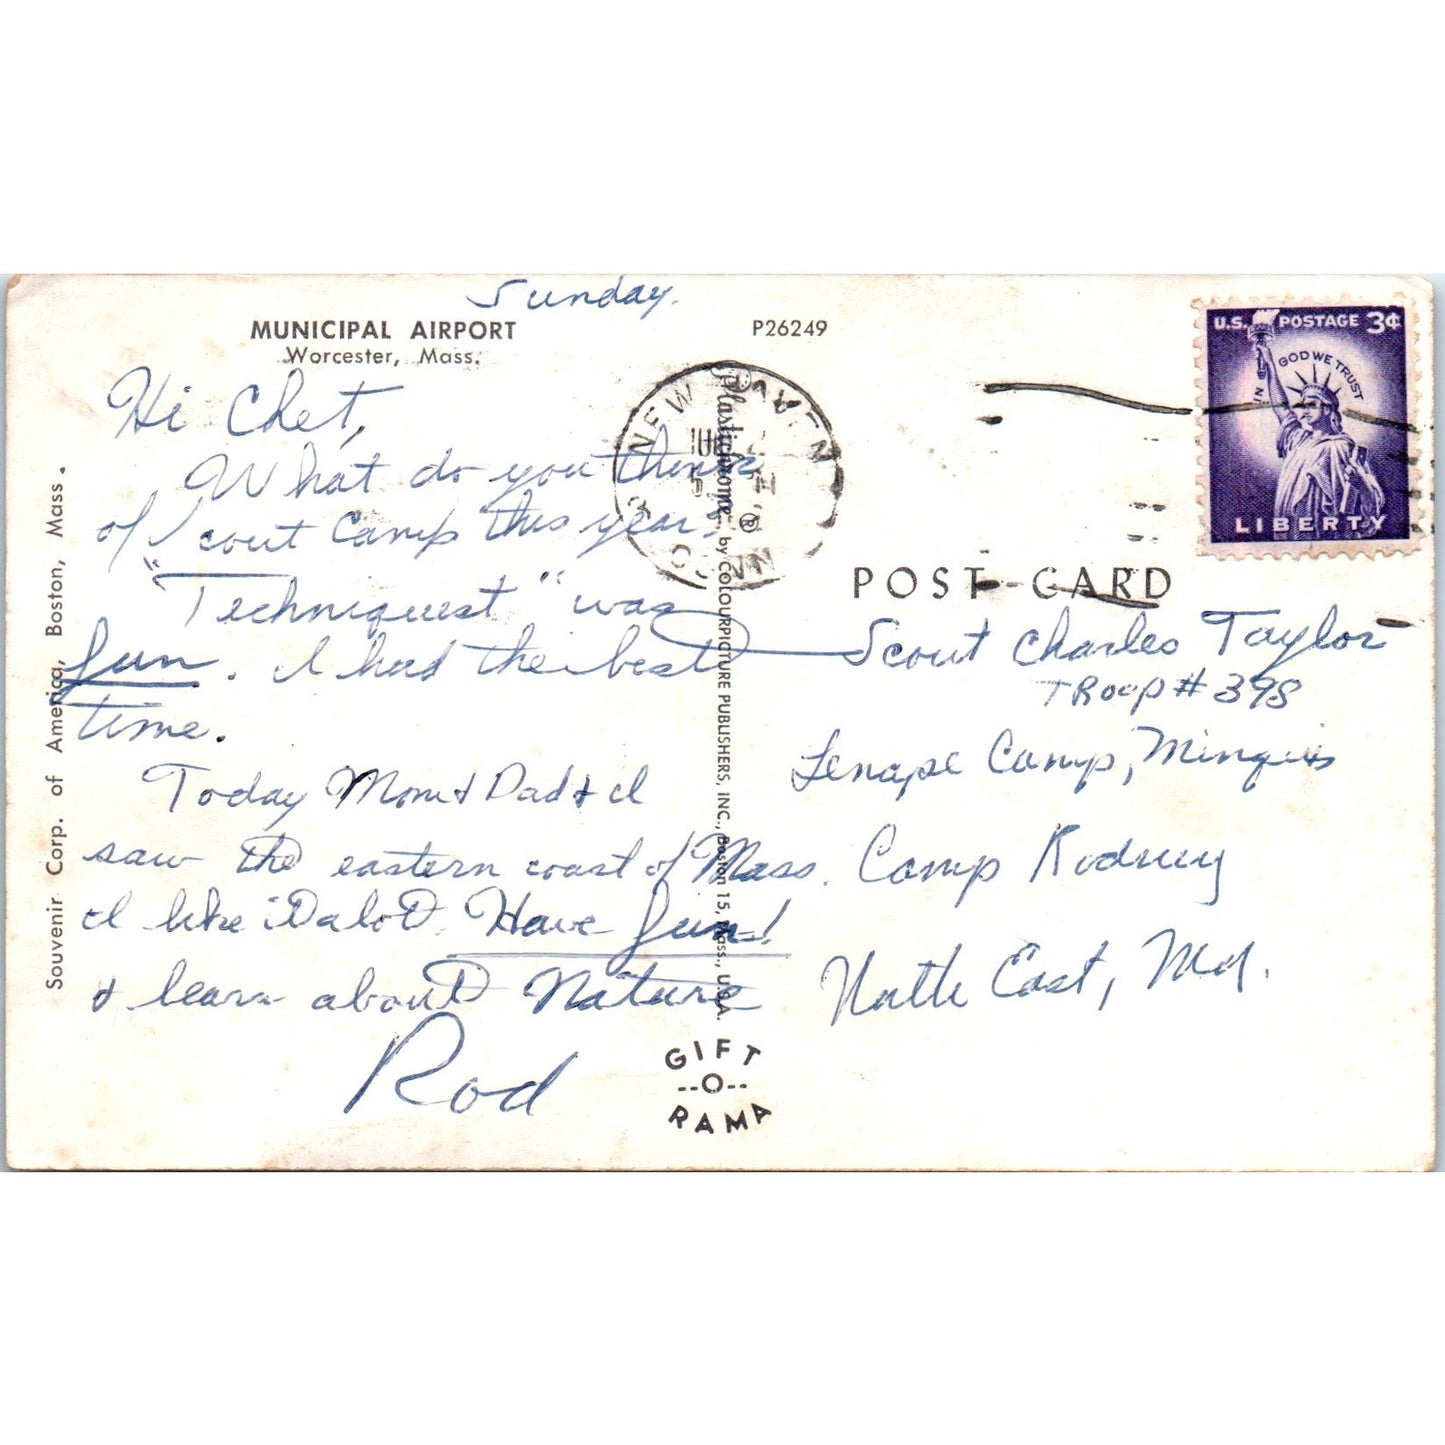 Sunday.
MUNICIPAL AIRPORT
Worcester, Mass.
P26249
Hi Chet,
What do you think
of Scout Camp this year?
"Techniquest" was
fun. I had the best
time.
Today Mom & Dad & I
saw the eastern coast of Mass.
I like it a lot. Have fun!
& learn about Nature
Rod
Souvenir Corp. of America, Boston, Mass.
Plastichrome ® by COLOURPICTURE PUBLISHERS, INC., Boston 15, Mass., U.S.A.
GIFT
--O--
RAMA
NEW HAVEN
CONN
U.S. POSTAGE 3¢
IN GOD WE TRUST
LIBERTY
POST CARD
Scout Charles Taylor
TROOP # 398
Lenape Camp,
Camp Rodney
North East, Md.